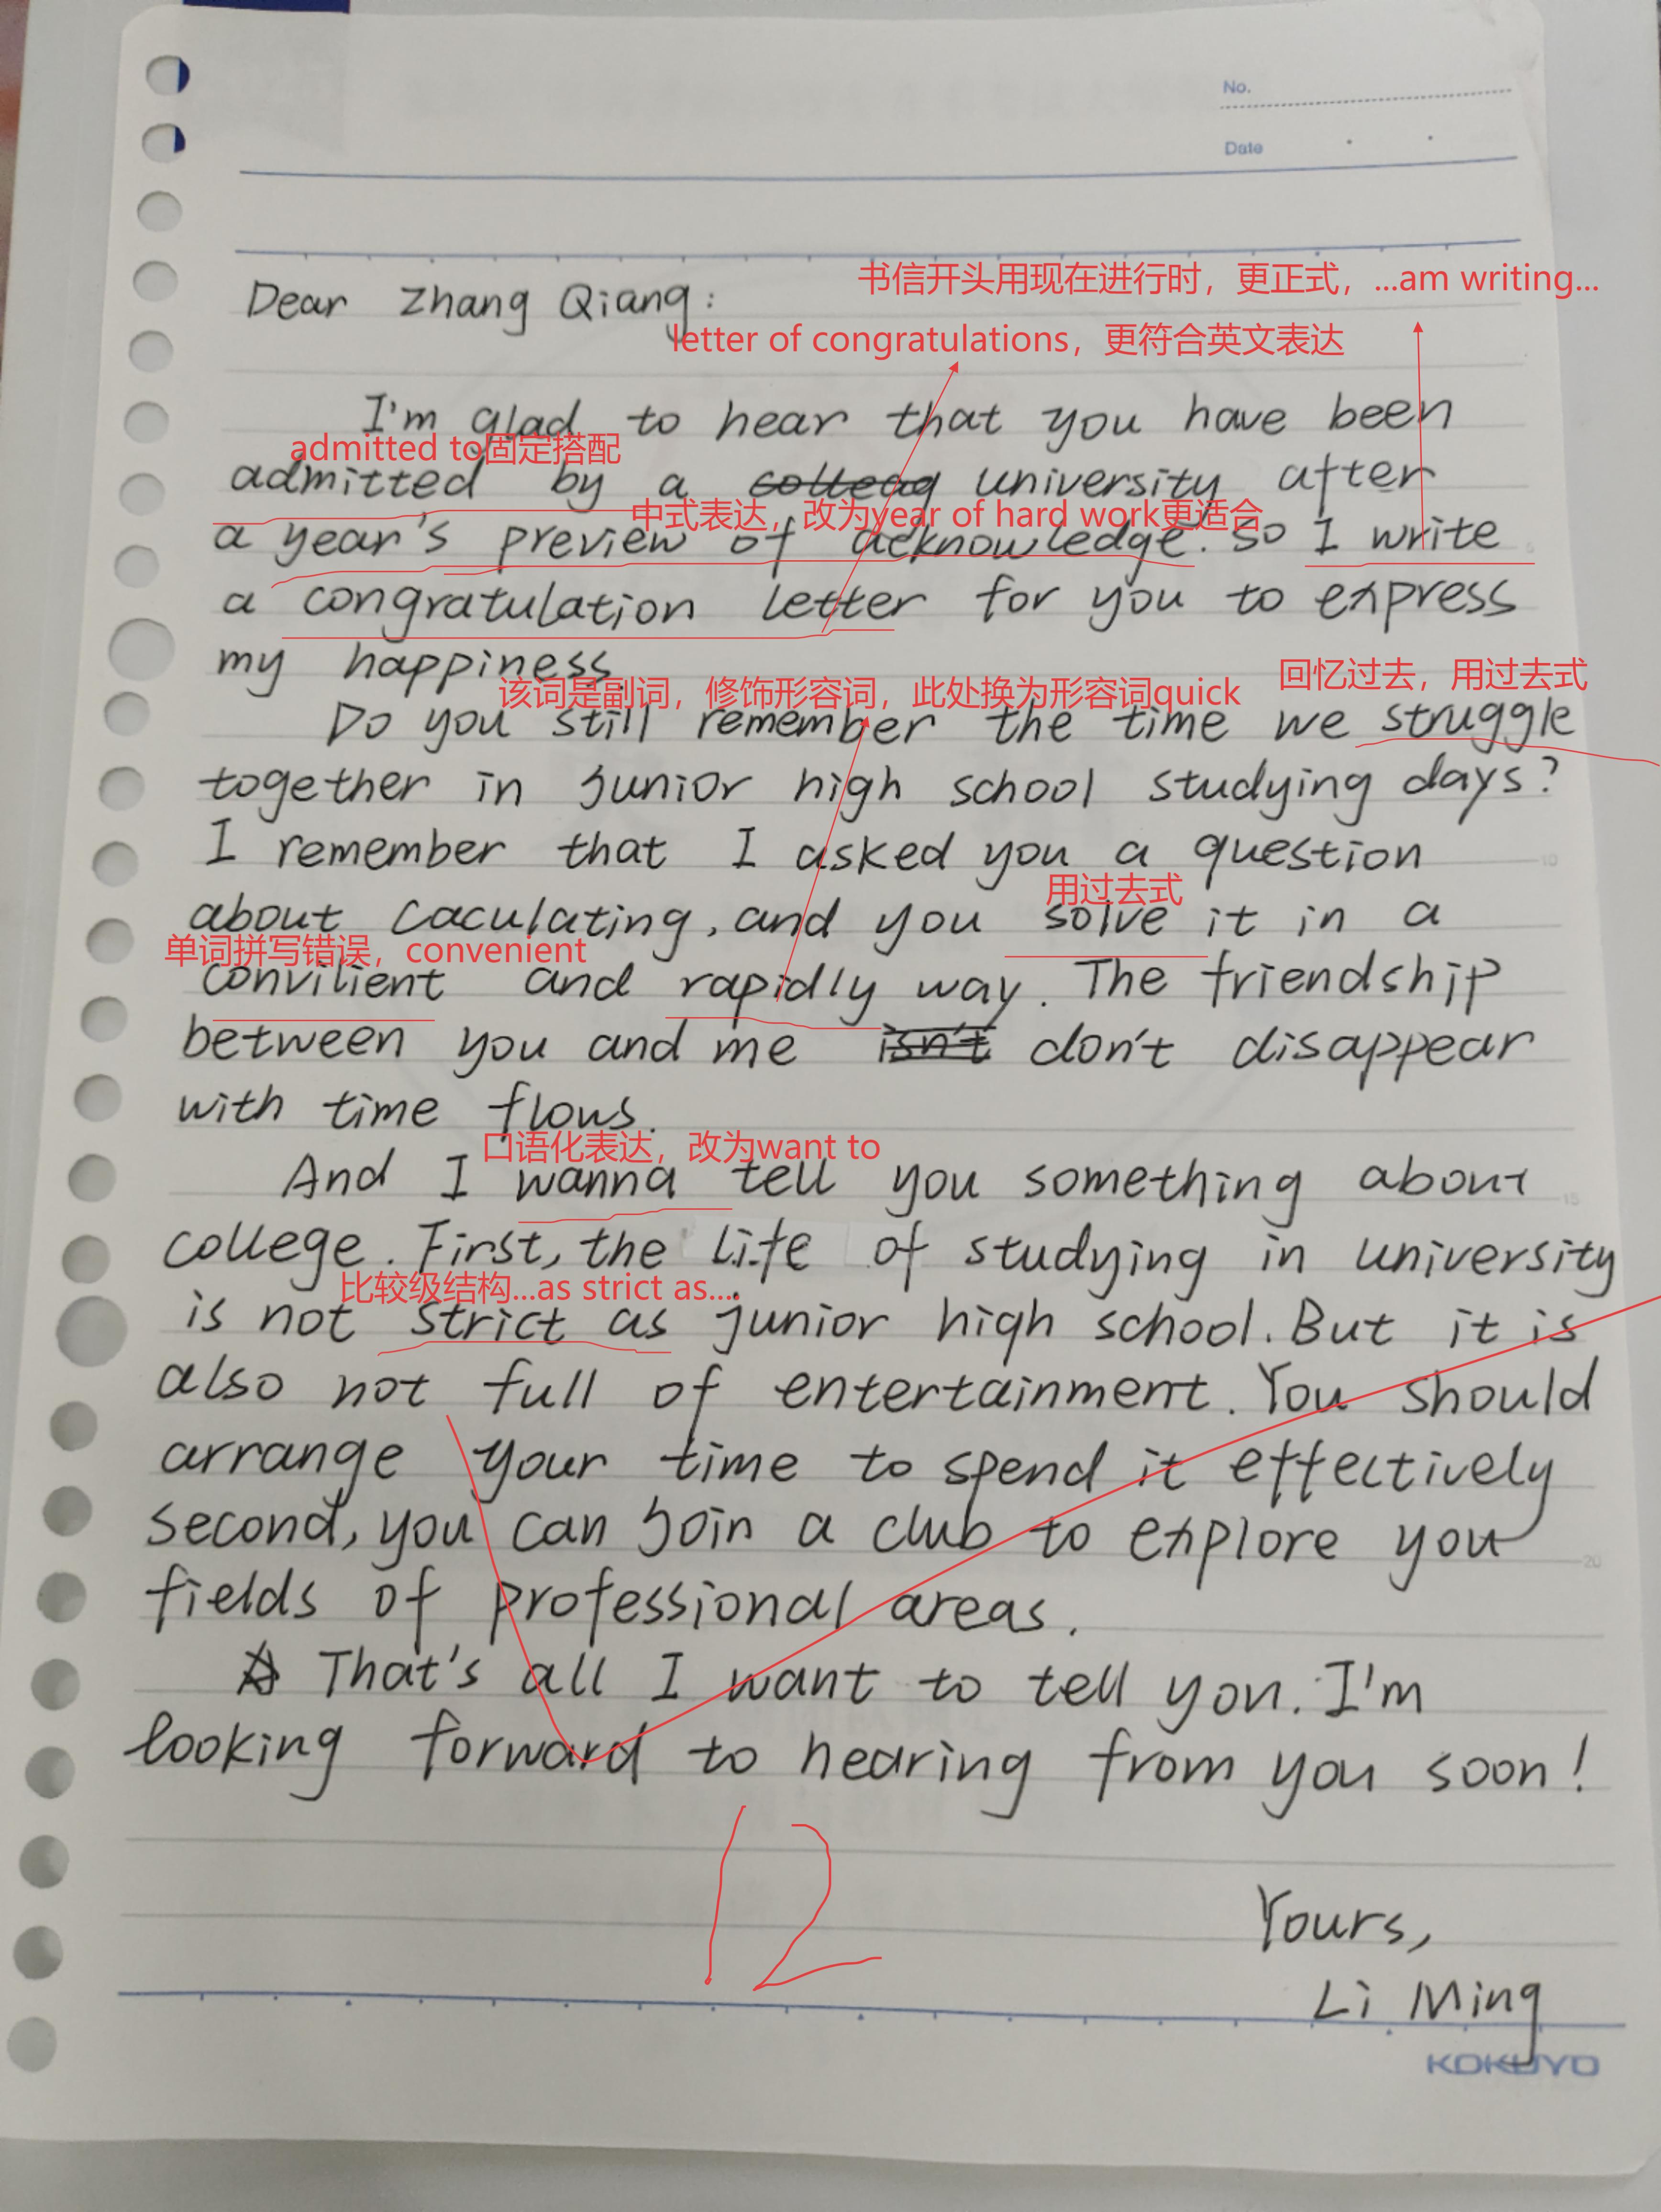 No.
Date
书信开头用现在进行时，更正式，...am writing...
Dear Zhang Qiang:
letter of congratulations，更符合英文表达
I'm glad to hear that you have been
admitted to固定搭配
admitted by a colleag university after
中式表达，改为year of hard work更适合
a year's preview of acknowledge. so I write
a congratulation letter for you to express
my happiness.
该词是副词，修饰形容词，此处换为形容词quick
回忆过去，用过去式
Do you still remember the time we struggle
together in junior high school studying days?
I remember that I asked you a question
用过去式
about caculating, and you solve it in a
单词拼写错误，convenient
convilient and rapidly way. The friendship
between you and me isn't don't disappear
with time flows.
口语化表达，改为want to
And I wanna tell you something about
college. First, the life of studying in university
比较级结构...as strict as....
is not strict as junior high school. But it is
also not full of entertainment. You should
arrange your time to spend it effectively
second, you can join a club to explore you
fields of professional areas.
A That's all I want to tell you. I'm
looking forward to hearing from you soon!
12
Yours,
Li Ming
KOKUYO